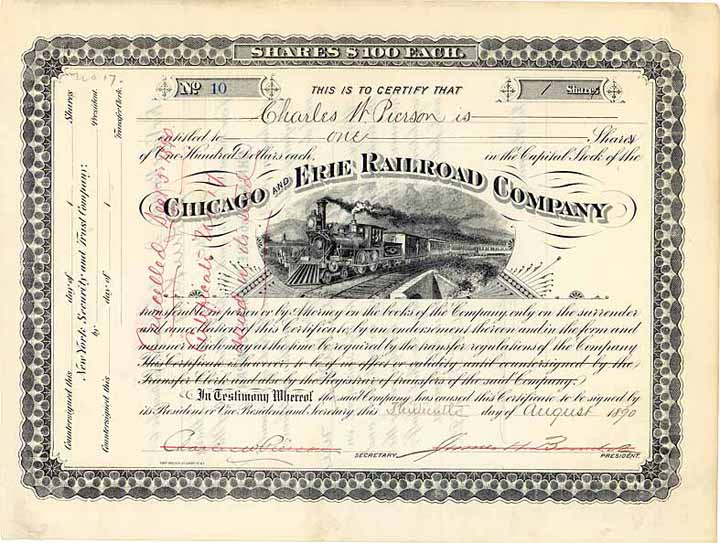 SHARES $100 EACH.
No 17.
No 10
THIS IS TO CERTIFY THAT
1 Shares
Charles W. Pierson is
entitled to one Shares
of One Hundred Dollars each, in the Capital Stock of the
CHICAGO AND ERIE RAILROAD COMPANY
transferable in person or by Attorney on the books of the Company only on the surrender
and cancellation of this Certificate, by an endorsement thereon and in the form and
manner which may at the time be required by the transfer regulations of the Company
This Certificate is, however, to be of no effect or validity until countersigned by the
Transfer Clerk and also by the Registrar of transfers of the said Company.
In Testimony Whereof the said Company has caused this Certificate to be signed by
its President or Vice President and Secretary this day of August 1890
Charles W Pierson
SECRETARY.
PRESIDENT.
Countersigned this day of 1 Shares
New York Security and Trust Company:
by President.
Countersigned this day of 1
Transfer Clerk.
Cancelled
Certificate No
issued in its stead